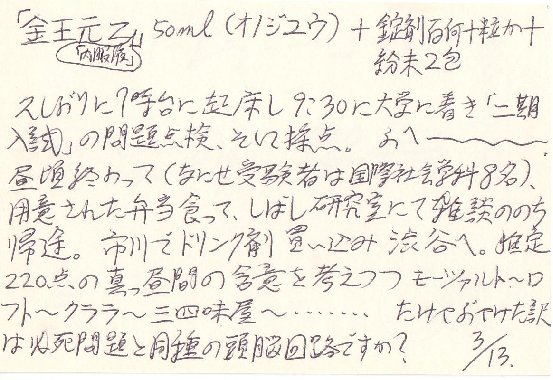 「金王元乙」50ml(オノジユウ)+錠剤百何十粒か+
「内服液」
粉末2包
久しぶりに7時台に起床し9:30に大学に着き「二期
入試」の問題点検、そして採点。おへ〜
昼頃終わって(なにせ受験者は国際社会学科8名)、
用意された弁当食って、しばし研究室にて雑談ののち
帰途。市川でドリンク剤買い込み渋谷へ。推定
220点の真っ昼間の含意を考えつつモーツァルト〜ロ
フト〜クララ〜三四味屋〜‥‥‥‥たけやおやけた訳
は必死問題と同種の頭脳回路ですか? 3/13.